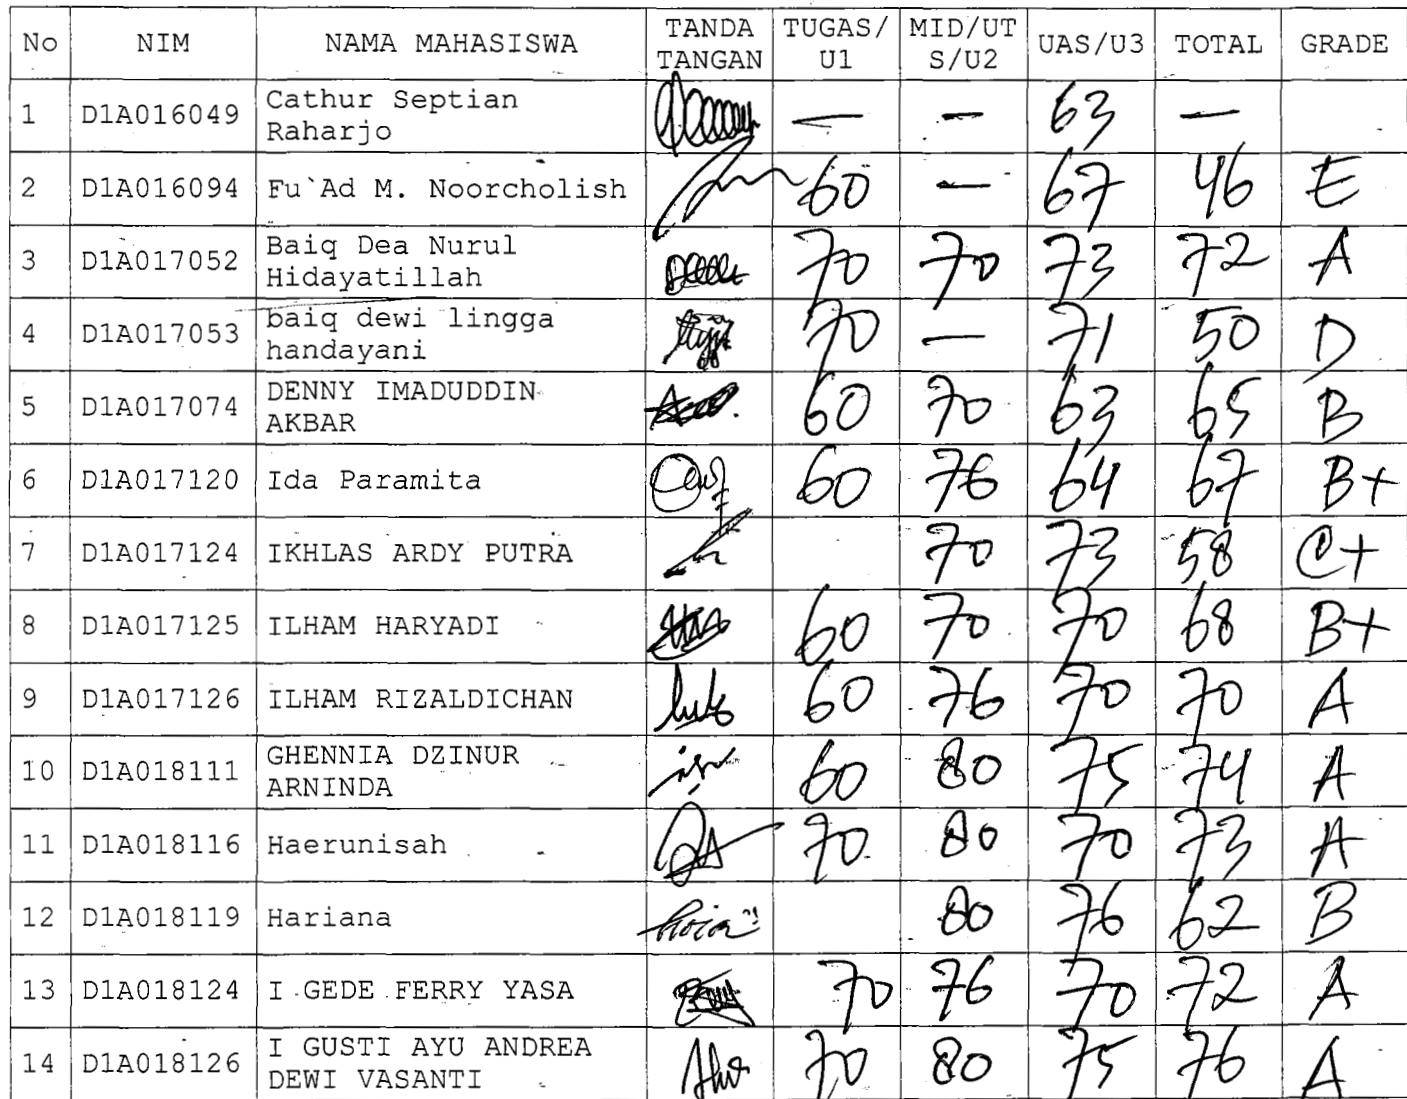 No NIM NAMA MAHASISWA TANDA TANGAN TUGAS/ U1 MID/UT S/U2 UAS/U3 TOTAL GRADE
1 D1A016049 Cathur Septian Raharjo — — 63 —
2 D1A016094 Fu`Ad M. Noorcholish 60 — 67 46 E
3 D1A017052 Baiq Dea Nurul Hidayatillah 70 70 73 72 A
4 D1A017053 baiq dewi lingga handayani 70 — 71 50 D
5 D1A017074 DENNY IMADUDDIN AKBAR 60 70 63 65 B
6 D1A017120 Ida Paramita 60 76 64 67 B+
7 D1A017124 IKHLAS ARDY PUTRA 70 73 58 C+
8 D1A017125 ILHAM HARYADI 60 70 70 68 B+
9 D1A017126 ILHAM RIZALDICHAN 60 76 70 70 A
10 D1A018111 GHENNIA DZINUR ARNINDA 60 80 75 74 A
11 D1A018116 Haerunisah 70 80 70 73 A
12 D1A018119 Hariana 80 76 62 B
13 D1A018124 I GEDE FERRY YASA 70 76 70 72 A
14 D1A018126 I GUSTI AYU ANDREA DEWI VASANTI 70 80 75 76 A